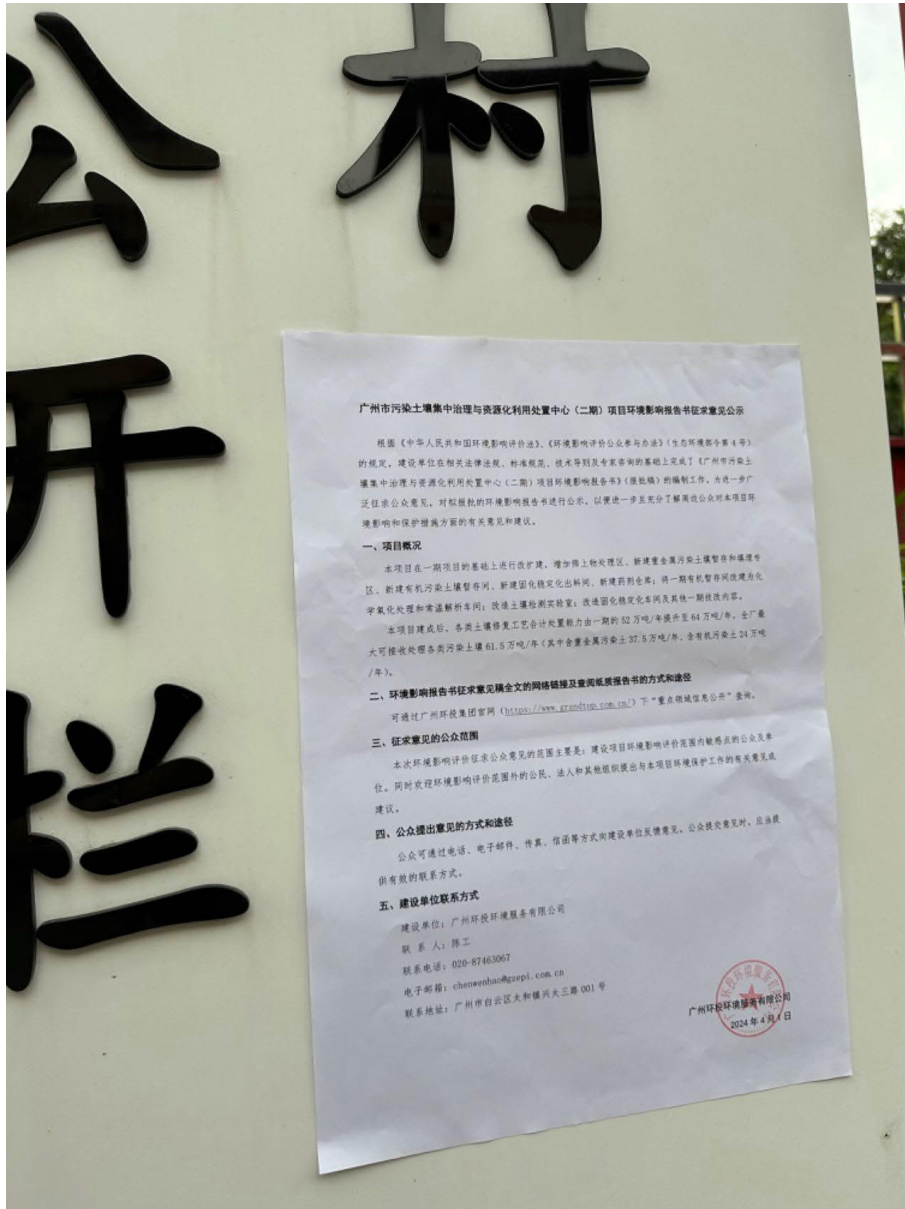 村
公开栏
广州市污染土壤集中治理与资源化利用处置中心（二期）项目环境影响报告书征求意见公示
根据《中华人民共和国环境影响评价法》、《环境影响评价公众参与办法》（生态环境部令第4号）
的规定，建设单位在相关法律法规、标准规范、技术导则及专家咨询的基础上完成了《广州市污染土
壤集中治理与资源化利用处置中心（二期）项目环境影响报告书》（报批稿）的编制工作。为进一步广
泛征求公众意见，对拟报批的环境影响报告书进行公示，以便进一步且充分了解周边公众对本项目环
境影响和保护措施方面的有关意见和建议。
一、项目概况
本项目在一期项目的基础上进行改扩建，增加筛上物处理区、新建重金属污染土壤暂存和填埋专
区、新建有机污染土壤暂存间、新建固化稳定化出料间、新建药剂仓库；将一期有机暂存间改建为化
学氧化处理和常温解析车间；改造土壤检测实验室；改造固化稳定化车间及其他一期技改内容。
本项目建成后，各类土壤修复工艺合计处置能力由一期的52万吨/年提升至64万吨/年，全厂最
大可接收处理各类污染土壤61.5万吨/年（其中含重金属污染土37.5万吨/年、含有机污染土24万吨
/年）。
二、环境影响报告书征求意见稿全文的网络链接及查阅纸质报告书的方式和途径
可通过广州环投集团官网（https://www.grandtop.com.cn/）下“重点领域信息公开”查询。
三、征求意见的公众范围
本次环境影响评价征求公众意见的范围主要是：建设项目环境影响评价范围内敏感点的公众及单
位。同时欢迎环境影响评价范围外的公民、法人和其他组织提出与本项目环境保护工作的有关意见或
建议。
四、公众提出意见的方式和途径
公众可通过电话、电子邮件、传真、信函等方式向建设单位反馈意见。公众提交意见时，应当提
供有效的联系方式。
五、建设单位联系方式
建设单位：广州环投环境服务有限公司
联 系 人：陈工
联系电话：020-87463067
电子邮箱：chenwenhao@gzepi.com.cn
联系地址：广州市白云区太和镇兴太三路001号
广州环投环境服务有限公司
2024年4月1日